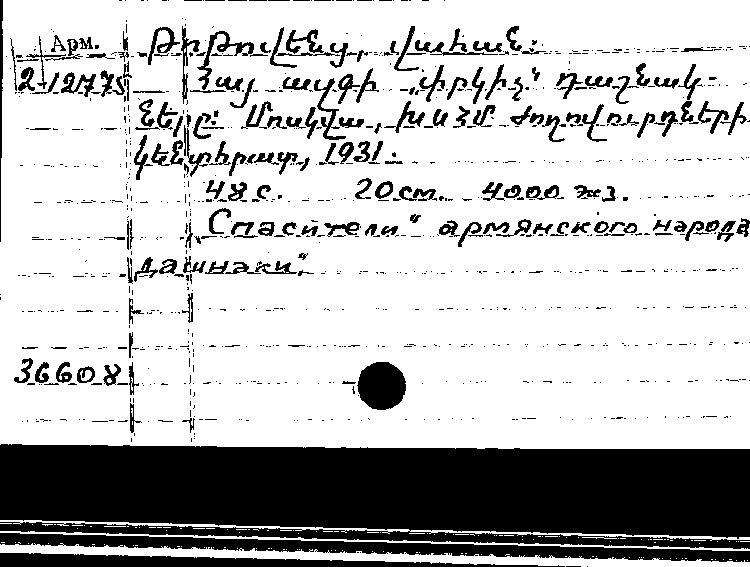 Арм.
Թոթովենց, Վահան:
2-12775
Հայ ազգի „փրկիչ“ դաշնակ-
ները: Մոսկվա, ԽՍՀՄ Ժողովուրդների
կենտհրատ, 1931.
48 с. 20 см. 4000 экз.
„Спасители“ армянского народа
дашнаки“.
36608